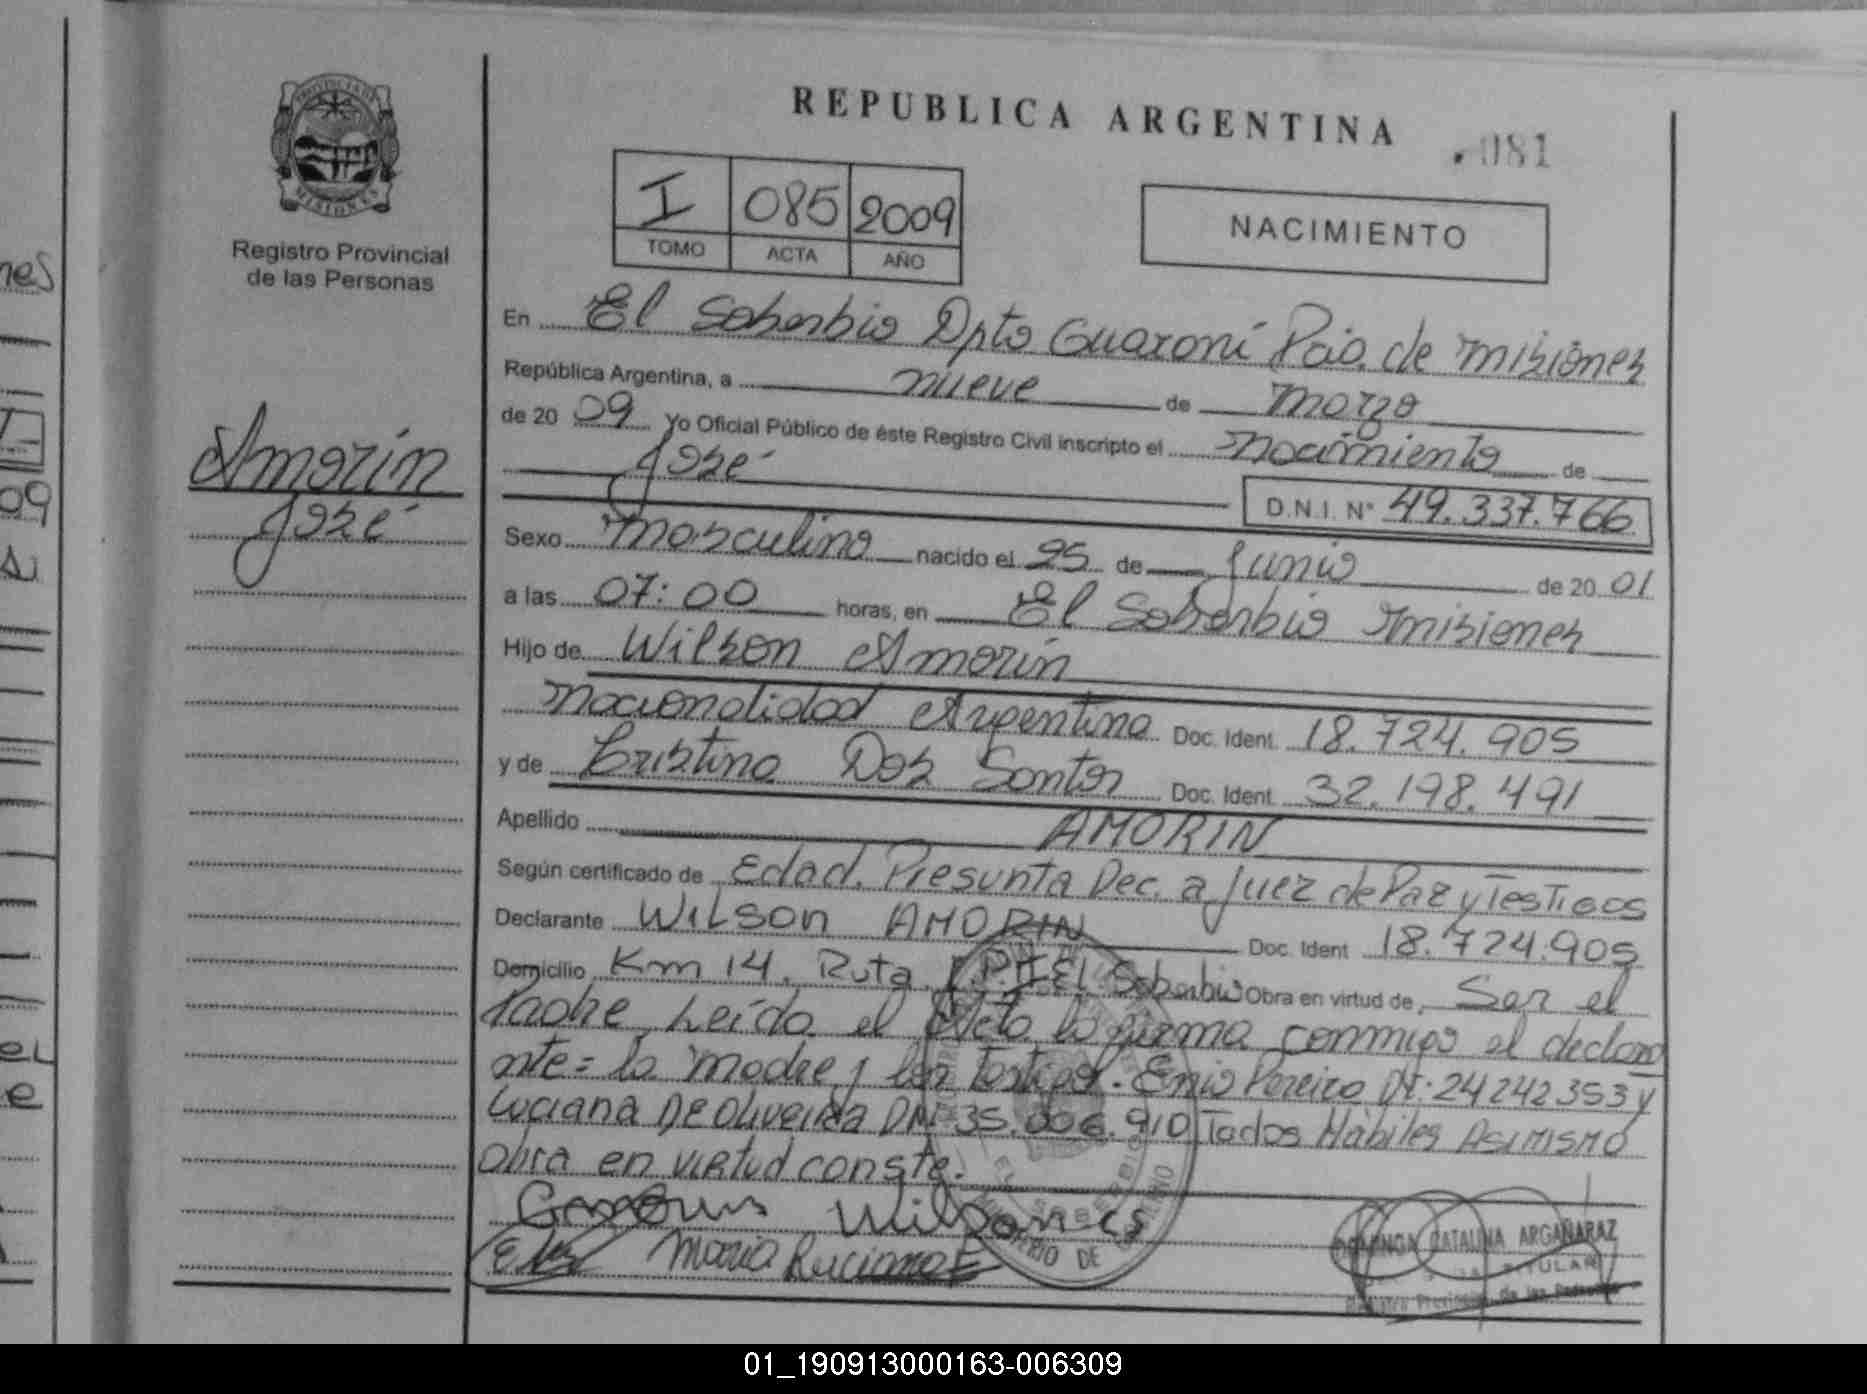 PROVINCIA DE
MISIONES
Registro Provincial
de las Personas
Amorín
José
REPUBLICA ARGENTINA
081
I 085 2009
TOMO ACTA AÑO
NACIMIENTO
En El Soberbio Dpto Guaraní Pcia. de misiones
República Argentina, a nueve de marzo
de 20 09 Yo Oficial Público de éste Registro Civil inscripto el nacimiento de
José
D.N.I. N° 49.337.766
Sexo masculino nacido el 25 de Junio de 20 01
a las 07:00 horas, en El Soberbio misiones
Hijo de Wilson Amorín
nacionalidad Argentina Doc. Ident. 18.724.905
y de Cristina Dos Santos Doc. Ident. 32.198.491
Apellido AMORIN
Según certificado de Edad. Presunta Dec. a Juez de Paz y Testigos
Declarante WILSON AMORIN Doc. Ident 18.724.905
Domicilio Km 14. Ruta El Soberbio Obra en virtud de Ser el
Padre Leída el Acta la firma conmigo el declara
nte = la madre y los testigos. Enio Pereira DNI: 24242353 y
Luciana DE Oliveira DNI 35.006.910 Todos Hábiles ASIMISMO
Obra en virtud conste.
Wilson
Maria Luciana
DOMINGA CATALINA ARGAÑARAZ
TITULAR
Registro Provincial de las Personas
EL SOBERBIO
MINISTERIO DE GOBIERNO
nes
09
EL
e
01_190913000163-006309